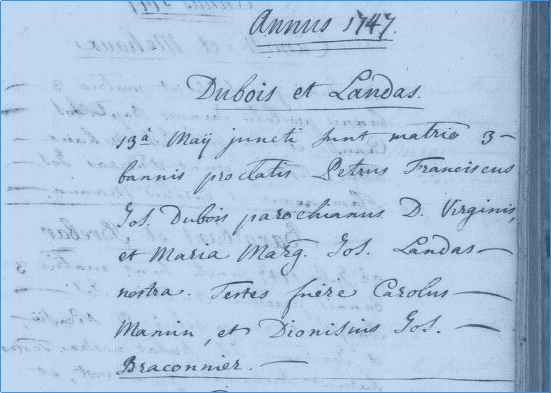 Annus 1747.
Dubois et Landas.
13ª Maÿ juncti sunt matrio 3—
bannis proclatis Petrus Franciscus
Jos. Dubois parochianus D. Virginis,
et Maria Marg. Jos. Landas—
nostra. Testes fuêre Carolus—
Manin, et Dionisius Jos. —
Braconnier. —